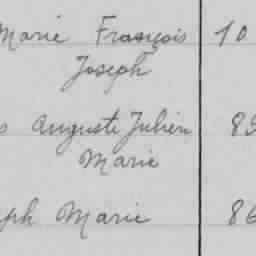 Marie François 10
Joseph
s Auguste Julien 89
Marie
ph Marie 86